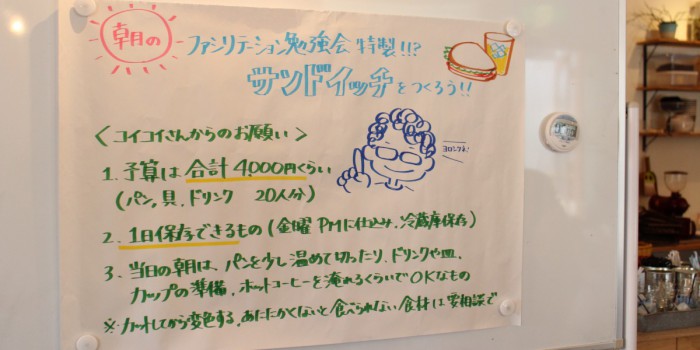 朝の
ファシリテーション勉強会特製!!?
サンドイッチをつくろう!!
<コイコイさんからのお願い>
1. 予算は合計4,000円くらい
(パン,具,ドリンク 20人分)
ヨロシクネ!
2. 1日保存できるもの(金曜PMに仕込み,冷蔵庫保存)
3. 当日の朝は、パンを少し温めて切ったり、ドリンクや皿、
カップの準備、ホットコーヒーを淹れるくらいでOKなもの
※カットしてから変色する,あたたかくないと食べられない食材は要相談で